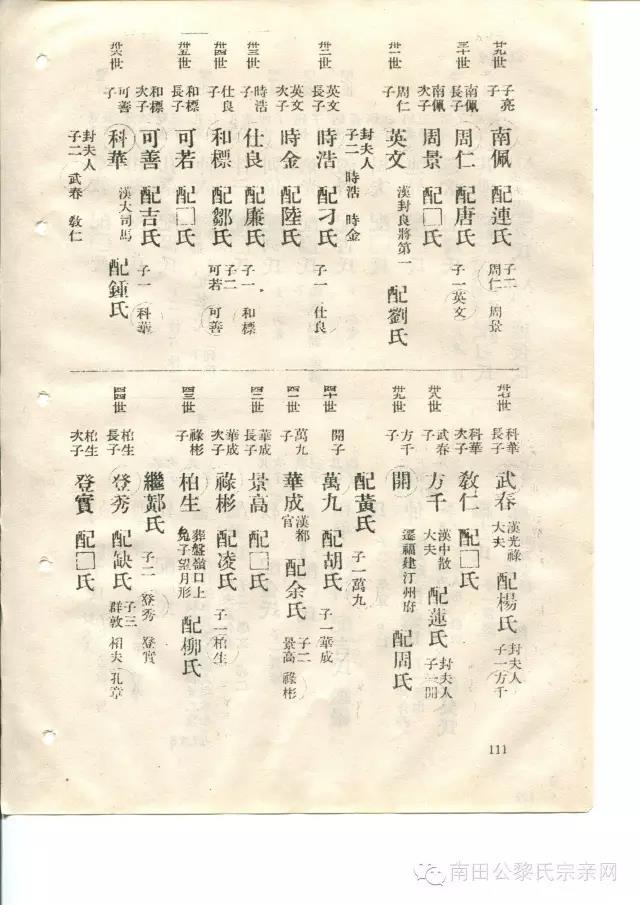 廿九世 子亮子 南佩 配連氏 子二 周仁 周景
三十世 南佩長子 周仁 配唐氏 子一英文
南佩次子 周景 配□氏
卅一世 周仁子 英文 漢封良將第一 配劉氏
封夫人 子二 時浩 時金
卅二世 英文長子 時浩 配刁氏 子一 仕良
英文次子 時金 配陸氏
卅三世 時浩子 仕良 配廉氏 子一 和標
卅四世 仕良子 和標 配鄒氏 子二 可若 可善
卅五世 和標長子 可若 配□氏
和標次子 可善 配吉氏 子一 科華
卅六世 可善子 科華 漢大司馬 配鍾氏
封夫人 子二 武春 教仁
卅七世 科華長子 武春 漢光祿大夫 配楊氏 封夫人 子一方千
科華次子 教仁 配□氏
卅八世 武春子 方千 漢中散大夫 配蓮氏 封夫人 子一開
卅九世 方千子 開 遷福建汀州府 配周氏
配黃氏 子一萬九
四十世 開子 萬九 配胡氏 子一華成
四一世 萬九子 華成 漢都官 配余氏 子二 景高 祿彬
四二世 華成長子 景高 配□氏
華成次子 祿彬 配凌氏 子一柏生
四三世 祿彬子 柏生 葬盤嶺口上兔子望月形 配柳氏
繼鄢氏 子二 登秀 登實
四四世 柏生長子 登秀 配缺氏 子三 群敦 相夫 孔章
柏生次子 登實 配□氏
111
南田公黎氏宗亲网